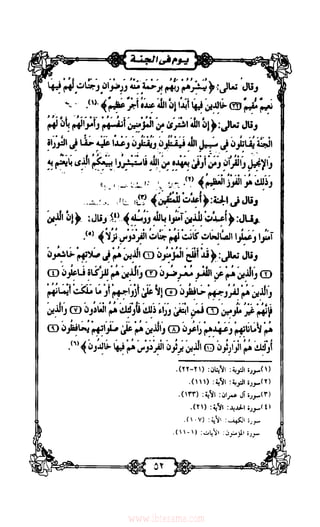 يوم في الجنة
وقال تعالى: ﴿يُبَشِّرُهُمْ رَبُّهُم بِرَحْمَةٍ مِّنْهُ وَرِضْوَانٍ وَجَنَّاتٍ لَّهُمْ فِيهَا
نَعِيمٌ مُّقِيمٌ ﴿٢١﴾ خَالِدِينَ فِيهَا أَبَدًا إِنَّ اللَّهَ عِندَهُ أَجْرٌ عَظِيمٌ﴾ (١).
وقال تعالى: ﴿إِنَّ اللَّهَ اشْتَرَىٰ مِنَ الْمُؤْمِنِينَ أَنفُسَهُمْ وَأَمْوَالَهُم بِأَنَّ لَهُمُ
الْجَنَّةَ يُقَاتِلُونَ فِي سَبِيلِ اللَّهِ فَيَقْتُلُونَ وَيُقْتَلُونَ وَعْدًا عَلَيْهِ حَقًّا فِي التَّوْرَاةِ
وَالْإِنجِيلِ وَالْقُرْآنِ وَمَنْ أَوْفَىٰ بِعَهْدِهِ مِنَ اللَّهِ فَاسْتَبْشِرُوا بِبَيْعِكُمُ الَّذِي بَايَعْتُم بِهِ
وَذَٰلِكَ هُوَ الْفَوْزُ الْعَظِيمُ﴾ (٢)
وقال في الجنة: ﴿أُعِدَّتْ لِلْمُتَّقِينَ﴾ (٣)
وقال: ﴿أُعِدَّتْ لِلَّذِينَ آمَنُوا بِاللَّهِ وَرُسُلِهِ﴾ (٤) وقال: ﴿إِنَّ الَّذِينَ
آمَنُوا وَعَمِلُوا الصَّالِحَاتِ كَانَتْ لَهُمْ جَنَّاتُ الْفِرْدَوْسِ نُزُلًا﴾ (٥).
وقال تعالى: ﴿قَدْ أَفْلَحَ الْمُؤْمِنُونَ ﴿١﴾ الَّذِينَ هُمْ فِي صَلَاتِهِمْ خَاشِعُونَ
﴿٢﴾ وَالَّذِينَ هُمْ عَنِ اللَّغْوِ مُعْرِضُونَ ﴿٣﴾ وَالَّذِينَ هُمْ لِلزَّكَاةِ فَاعِلُونَ ﴿٤﴾
وَالَّذِينَ هُمْ لِفُرُوجِهِمْ حَافِظُونَ ﴿٥﴾ إِلَّا عَلَىٰ أَزْوَاجِهِمْ أَوْ مَا مَلَكَتْ أَيْمَانُهُمْ
فَإِنَّهُمْ غَيْرُ مَلُومِينَ ﴿٦﴾ فَمَنِ ابْتَغَىٰ وَرَاءَ ذَٰلِكَ فَأُولَٰئِكَ هُمُ الْعَادُونَ ﴿٧﴾ وَالَّذِينَ
هُمْ لِأَمَانَاتِهِمْ وَعَهْدِهِمْ رَاعُونَ ﴿٨﴾ وَالَّذِينَ هُمْ عَلَىٰ صَلَوَاتِهِمْ يُحَافِظُونَ ﴿٩﴾
أُولَٰئِكَ هُمُ الْوَارِثُونَ ﴿١٠﴾ الَّذِينَ يَرِثُونَ الْفِرْدَوْسَ هُمْ فِيهَا خَالِدُونَ﴾ (٦).
(١) سورة التوبة: الآيتان: (٢١-٢٢).
(٢) سورة التوبة: الآية: (١١١).
(٣) سورة آل عمران: الآية: (١٣٣).
(٤) سورة الحديد: الآية: (٢١).
سورة الكهف: الآية: (١٠٧).
سورة المؤمنون: الآيات: (١-١١).
٥٢
www.ibtesama.com